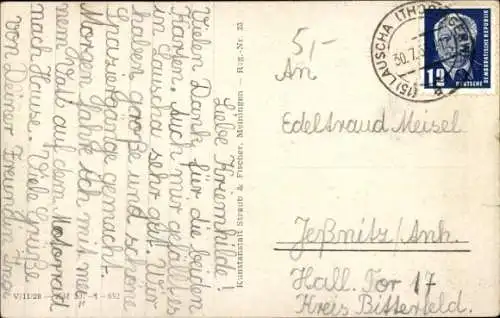 Liebe Kriemhilde!
Vielen Dank für die beiden
Karten. Auch mir gefällt es
in Lauscha sehr gut. Wir
haben große und schöne
Spaziergänge gemacht.
Morgen fahr ich mit mei-
nem Vati auf dem Motorrad
nach Hause. Viele Grüße
von Deiner Freundin Inge
V/11/28
Kunstanstalt Straub & Fischer, Meiningen - Reg.-Nr. 23
5,-
An
Edeltraud Meisel
Jeßnitz/Anh.
Hall. Tor 17
Kreis Bitterfeld.
(15) LAUSCHA (THÜR
30.7.5
12
DEUTSCHE
DEMOKRATISCHE REPUBLIK